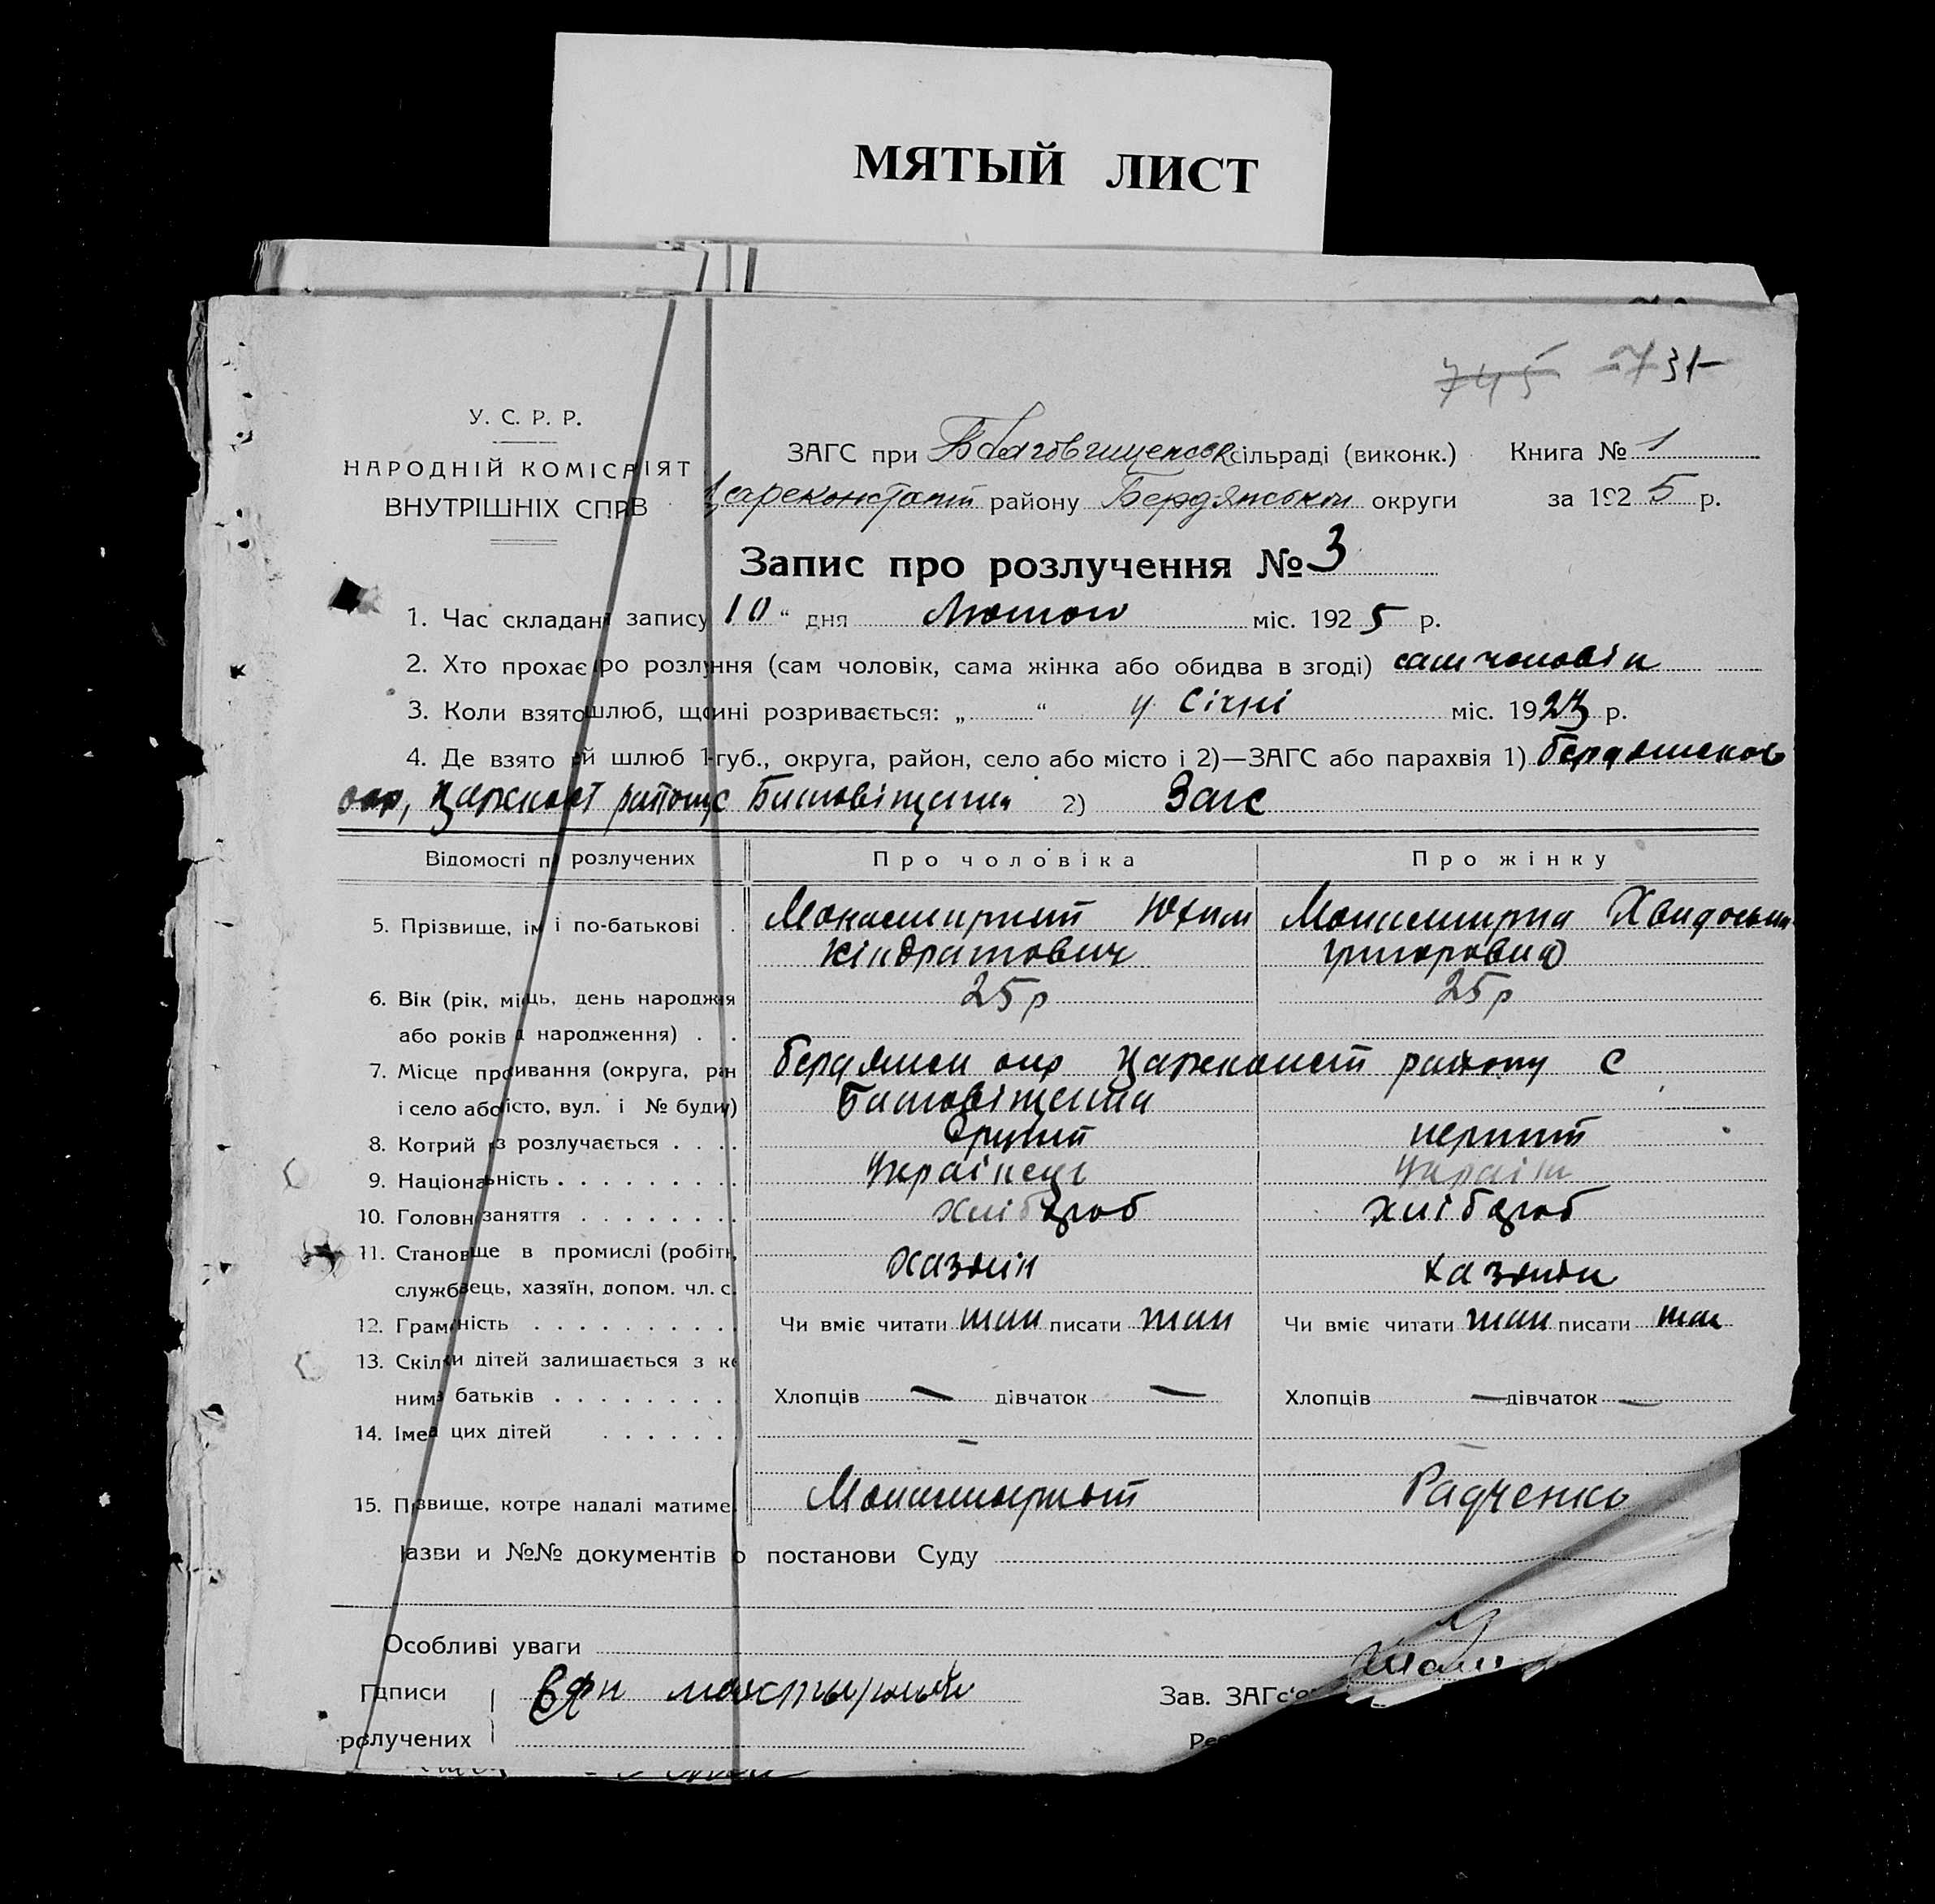 МЯТЫЙ ЛИСТ
745 731
У. С. Р. Р.
НАРОДНІЙ КОМІСАРІЯТ
ВНУТРІШНІХ СПРВ
ЗАГС при сільраді (виконк.) Книга № 1
Цареконстант району Бердянської округи за 1925 р.
Запис про розлучення № 3
1. Час складан запису 10 " дня Лютого міс. 1925 р.
2. Хто прохає ро розлуння (сам чоловік, сама жінка або обидва в згоді) сам чоловік
3. Коли взято шлюб, що ині розривається: „ “ у Січні міс. 1923 р.
4. Де взято ей шлюб 1-губ., округа, район, село або місто і 2)—ЗАГС або парахвія 1)
окр, Царконст району с 2) Загс
Відомості п розлучених Про чоловіка Про жінку
5. Прізвище, ім і по-батькові . Юхим
Кіндратович
6. Вік (рік, міць, день народжя 25 р 25 р
або років д народження) . .
7. Місце проивання (округа, рн Бердянск окр Царконст району с
і село або істо, вул. і № буди)
8. Котрий рз розлучається . . . . другий перший
9. Націонаьність . . . . . . . . . Українець
10. Головн заняття . . . . . . . . хлібороб хлібороб
11. Становще в промислі (робітн,
службвець, хазяїн, допом. чл. с. хазяїн хазяйка
12. Грамність . . . . . . . . . . Чи вміє читати так писати так Чи вміє читати так писати так
13. Скілки дітей залишається з ко
ним батьків . . . . . . . . . Хлопців — дівчаток — Хлопців — дівчаток —
14. Імеа цих дітей . . . . . . . –
15. Пзвище, котре надалі матиме. Радченко
азви и №№ документів о постанови Суду
Особливі уваги
Гдписи
Зав. ЗАГс'о
ролучених
Ре